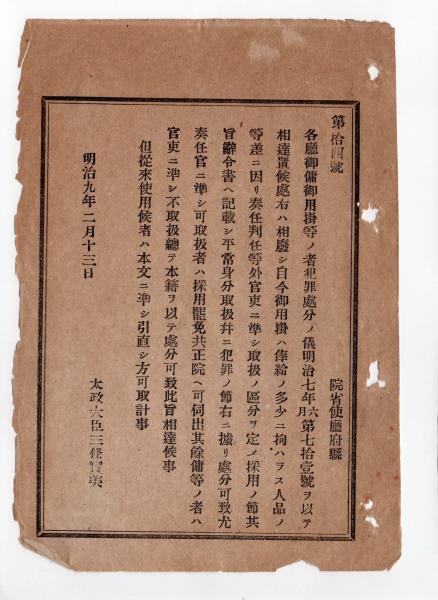 第拾四號
院省使廳府縣
各廳御傭御用掛等ノ者犯罪處分ノ儀明治七年六月第七拾壹號ヲ以テ
相達置候處右ハ相廢シ自今御用掛ハ俸給ノ多少ニ拘ハラス人品ノ
等差ニ因リ奏任判任等外官吏ニ準シ取扱ノ區分ヲ定メ採用ノ節其
旨辭令書ヘ記載シ平常身分取扱幷ニ犯罪ノ節右ニ據リ處分可致尤
奏任官ニ準シ可取扱者ハ採用罷免共正院ヘ可伺出其餘傭等ノ者ハ
官吏ニ準シ不取扱總テ本籍ヲ以テ處分可致此旨相達候事
但從來使用候者ハ本文ニ準シ引直シ方可取計事
明治九年二月十三日
太政大臣三條實美